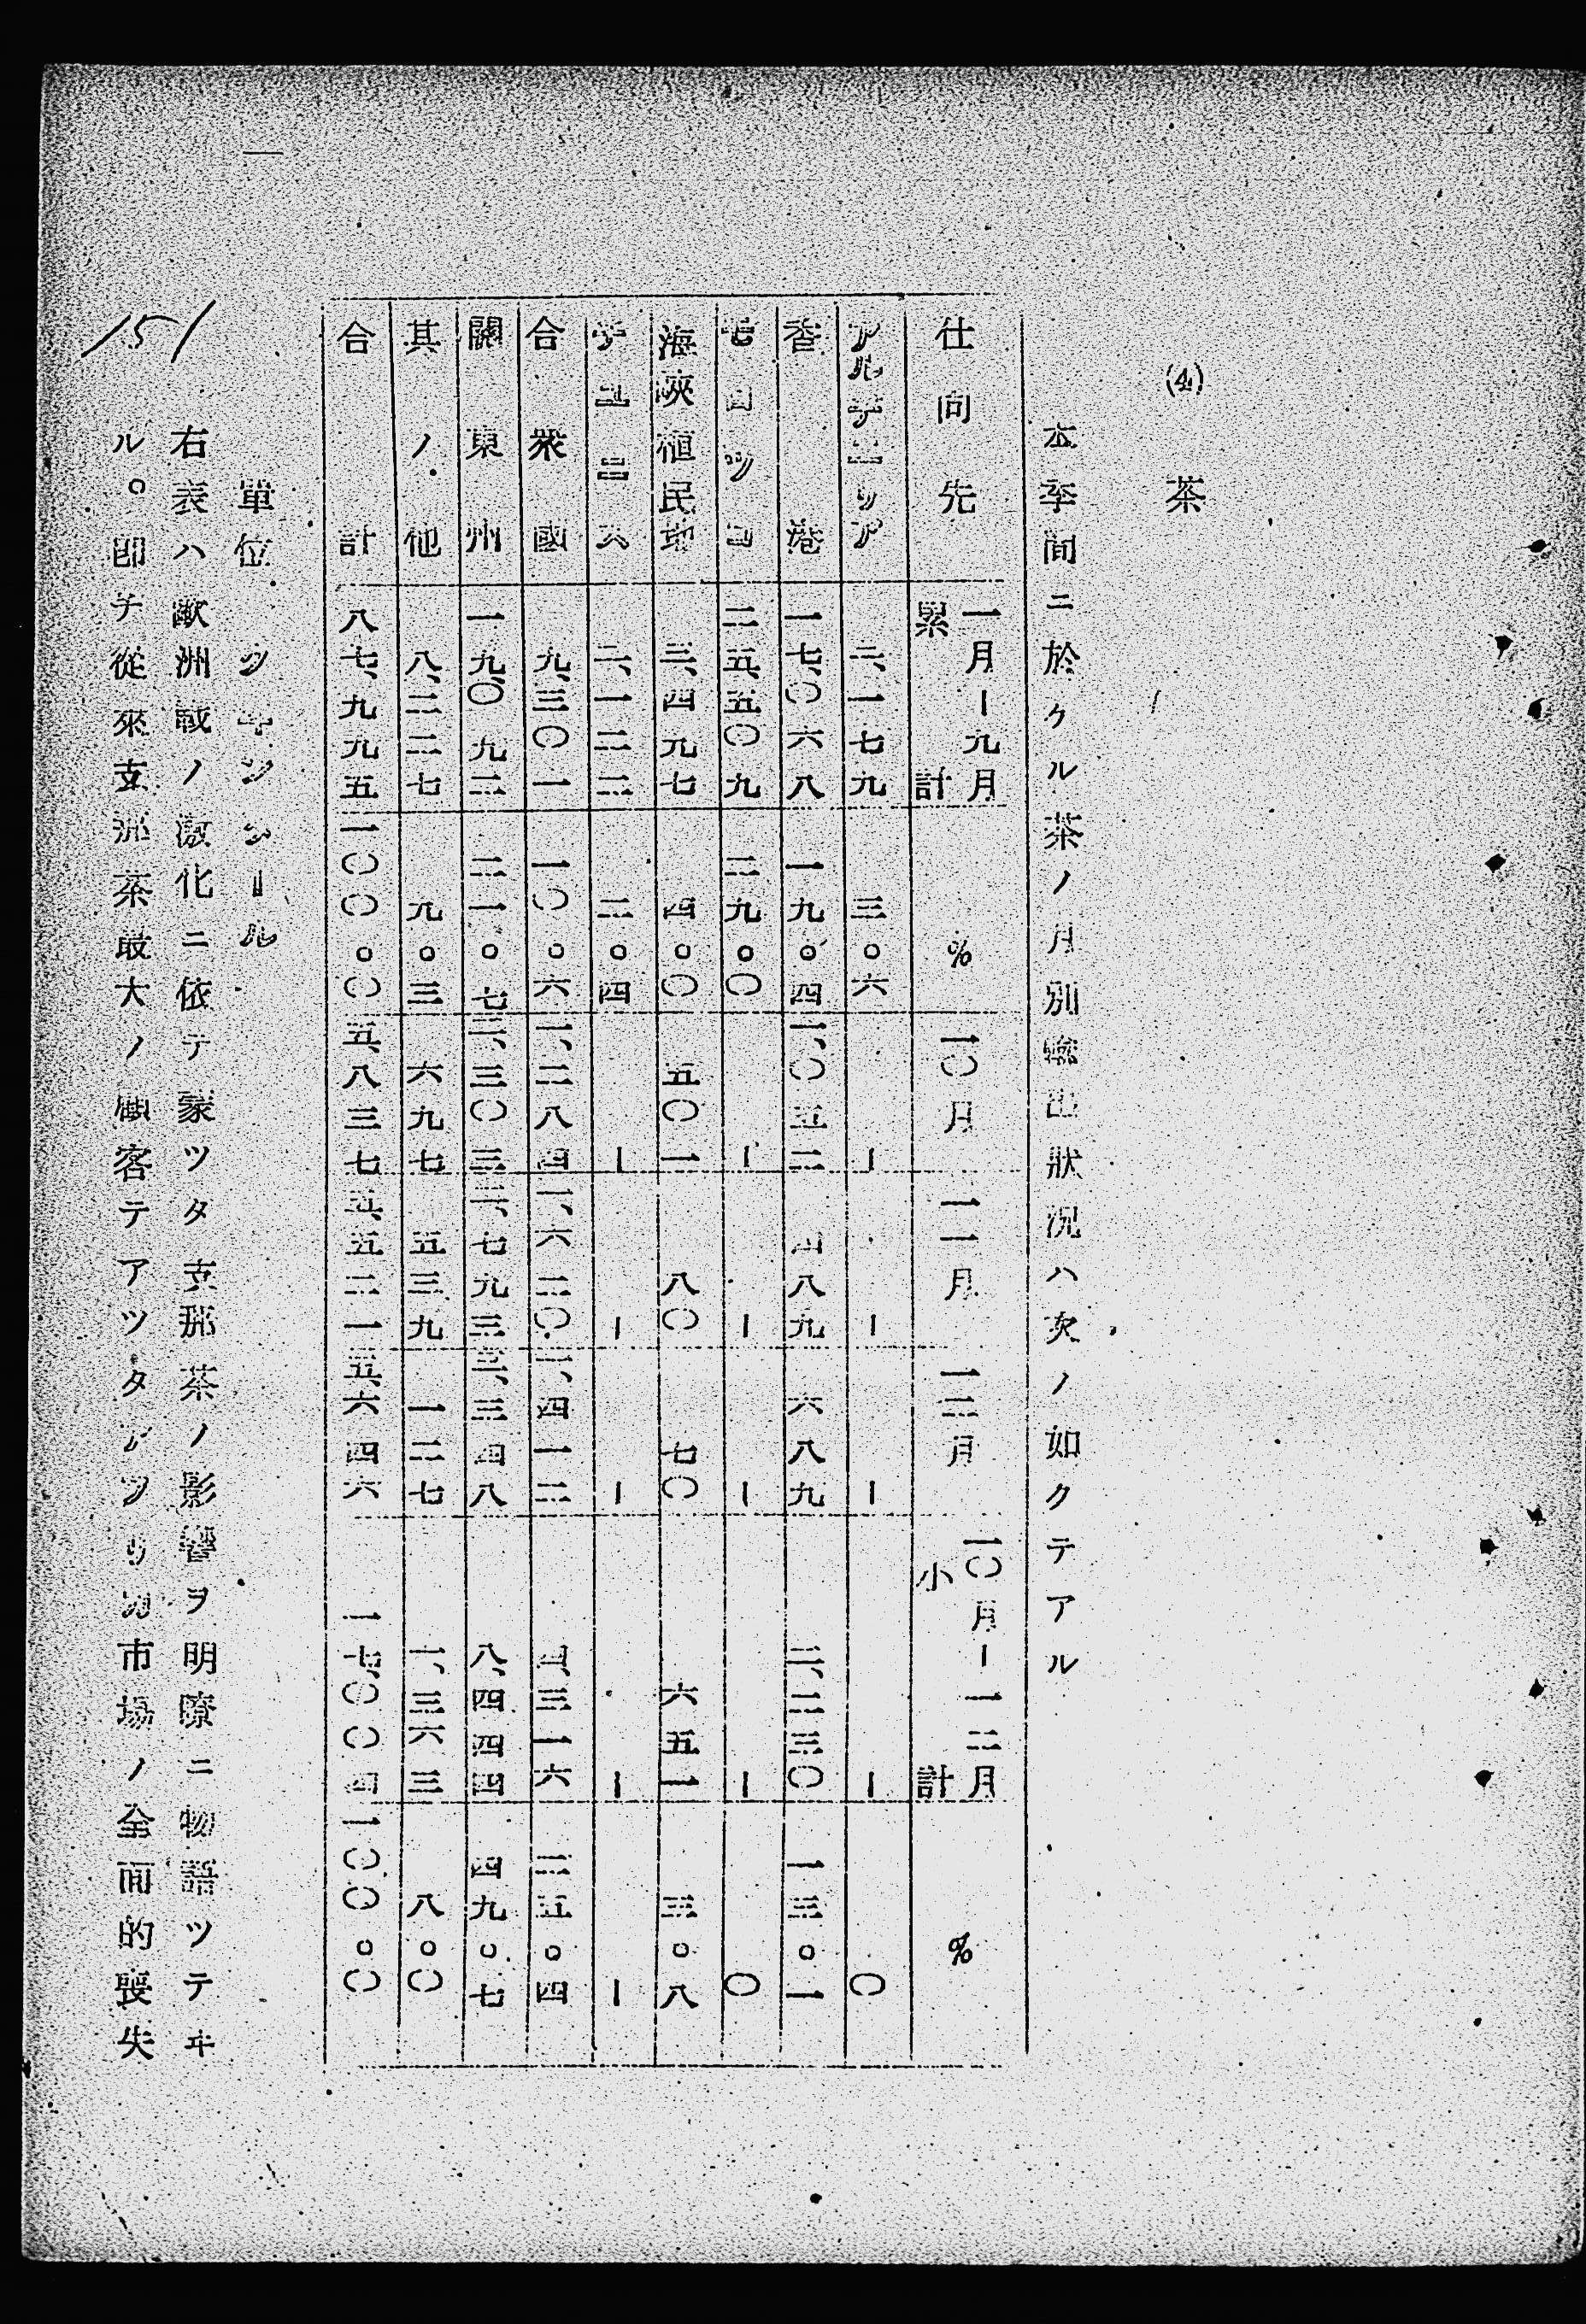 (4) 茶
本季間ニ於クル茶ノ月別輸出狀況ハ次ノ如クテアル
仕向先 一月-九月累計 % 一〇月 一一月 一二月 一〇月-一二月小計 %
アルヂエリア 三、一七九 三。六 - - - - 〇
香港 一七、〇六八 一九。四 一、〇五二 四八九 六八九 二、二三〇 一三。一
モロツコ 二五、五〇九 二九。〇 - - - - 〇
海峽植民地 三、四九七 四。〇 五〇一 八〇 七〇 六五一 三。八
チユニス 二、一二二 二。四 - - - - -
合衆國 九、三〇一 一〇。六 一、二八四 一、六二〇 一、四一二 四、三一六 二五。四
關東州 一九、〇九二 二一。七 二、三〇三 二、七九三 三、三四八 八、四四四 四九。七
其ノ他 八、二二七 九。三 六九七 五三九 一二七 一、三六三 八。〇
合計 八七、九九五 一〇〇。〇 五、八三七 五、五二一 五、六四六 一七、〇〇四 一〇〇。〇
單位 クヰンタール
右表ハ歐洲戰ノ激化ニ依テ蒙ツタ支那茶ノ影響ヲ明瞭ニ物語ツテヰ
ル。卽チ從來支那茶最大ノ顧客テアツタアフリカ市場ノ全面的喪失
151